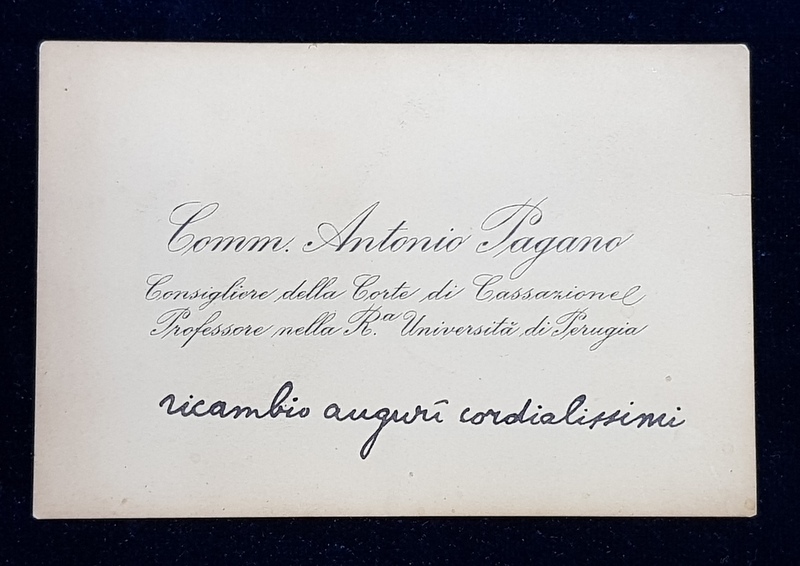 Comm. Antonio Pagano
Consigliere della Corte di Cassazione
Professore nella R.a Università di Perugia
ricambio augurî cordialissimi